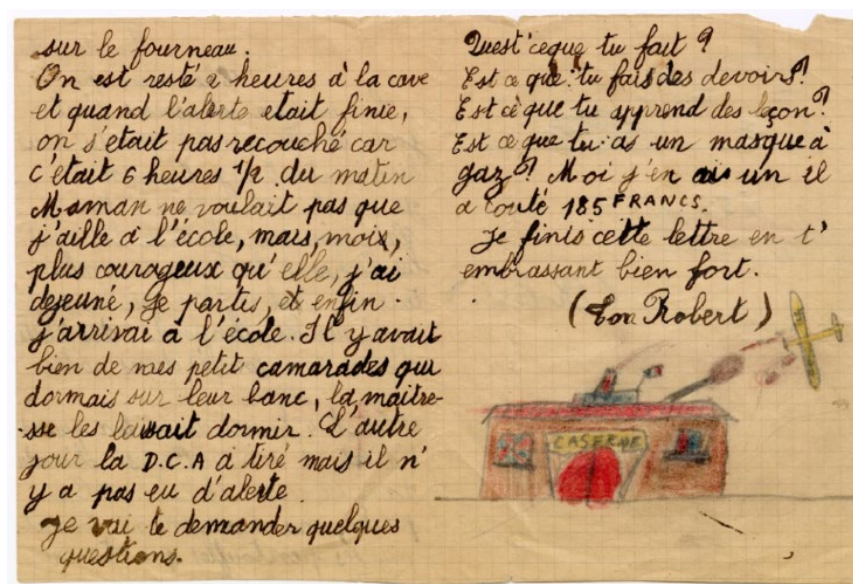 sur le fourneau.
On est resté 2 heures à la cave
et quand l'alerte etait finie,
on s'etait pas recouché car
c'était 6 heures 1/2 du matin
Maman ne voulait pas que
j'aille à l'école, mais, moi,
plus courageux qu'elle, j'ai
dejeuné, je partis, et enfin
j'arrivai à l'école. Il y avait
bien de mes petit camarades qui
dormais sur leur banc, la maitre-
sse les laissait dormir. L'autre
jour la D.C.A a tiré mais il n'
y a pas eu d'alerte.
Je vai te demander quelques
questions.
Quest'ceque tu fait ?
Est ce que tu fais des devoirs?
Est ce que tu apprend des leçon?
Est ce que tu as un masque à
gaz? Moi j'en ai un il
a couté 185 FRANCS.
Je finis cette lettre en t'
embrassant bien fort.
(Ton Robert)
CASERNE